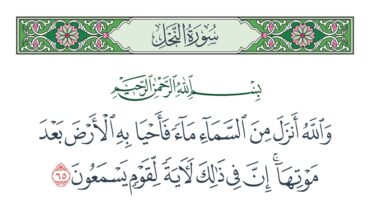 سُورَةُ النَّحْلِ
بِسْمِ اللَّهِ الرَّحْمَٰنِ الرَّحِيمِ
وَاللَّهُ أَنزَلَ مِنَ السَّمَاءِ مَاءً فَأَحْيَا بِهِ الْأَرْضَ بَعْدَ
مَوْتِهَا ۚ إِنَّ فِي ذَٰلِكَ لَآيَةً لِّقَوْمٍ يَسْمَعُونَ ٦٥